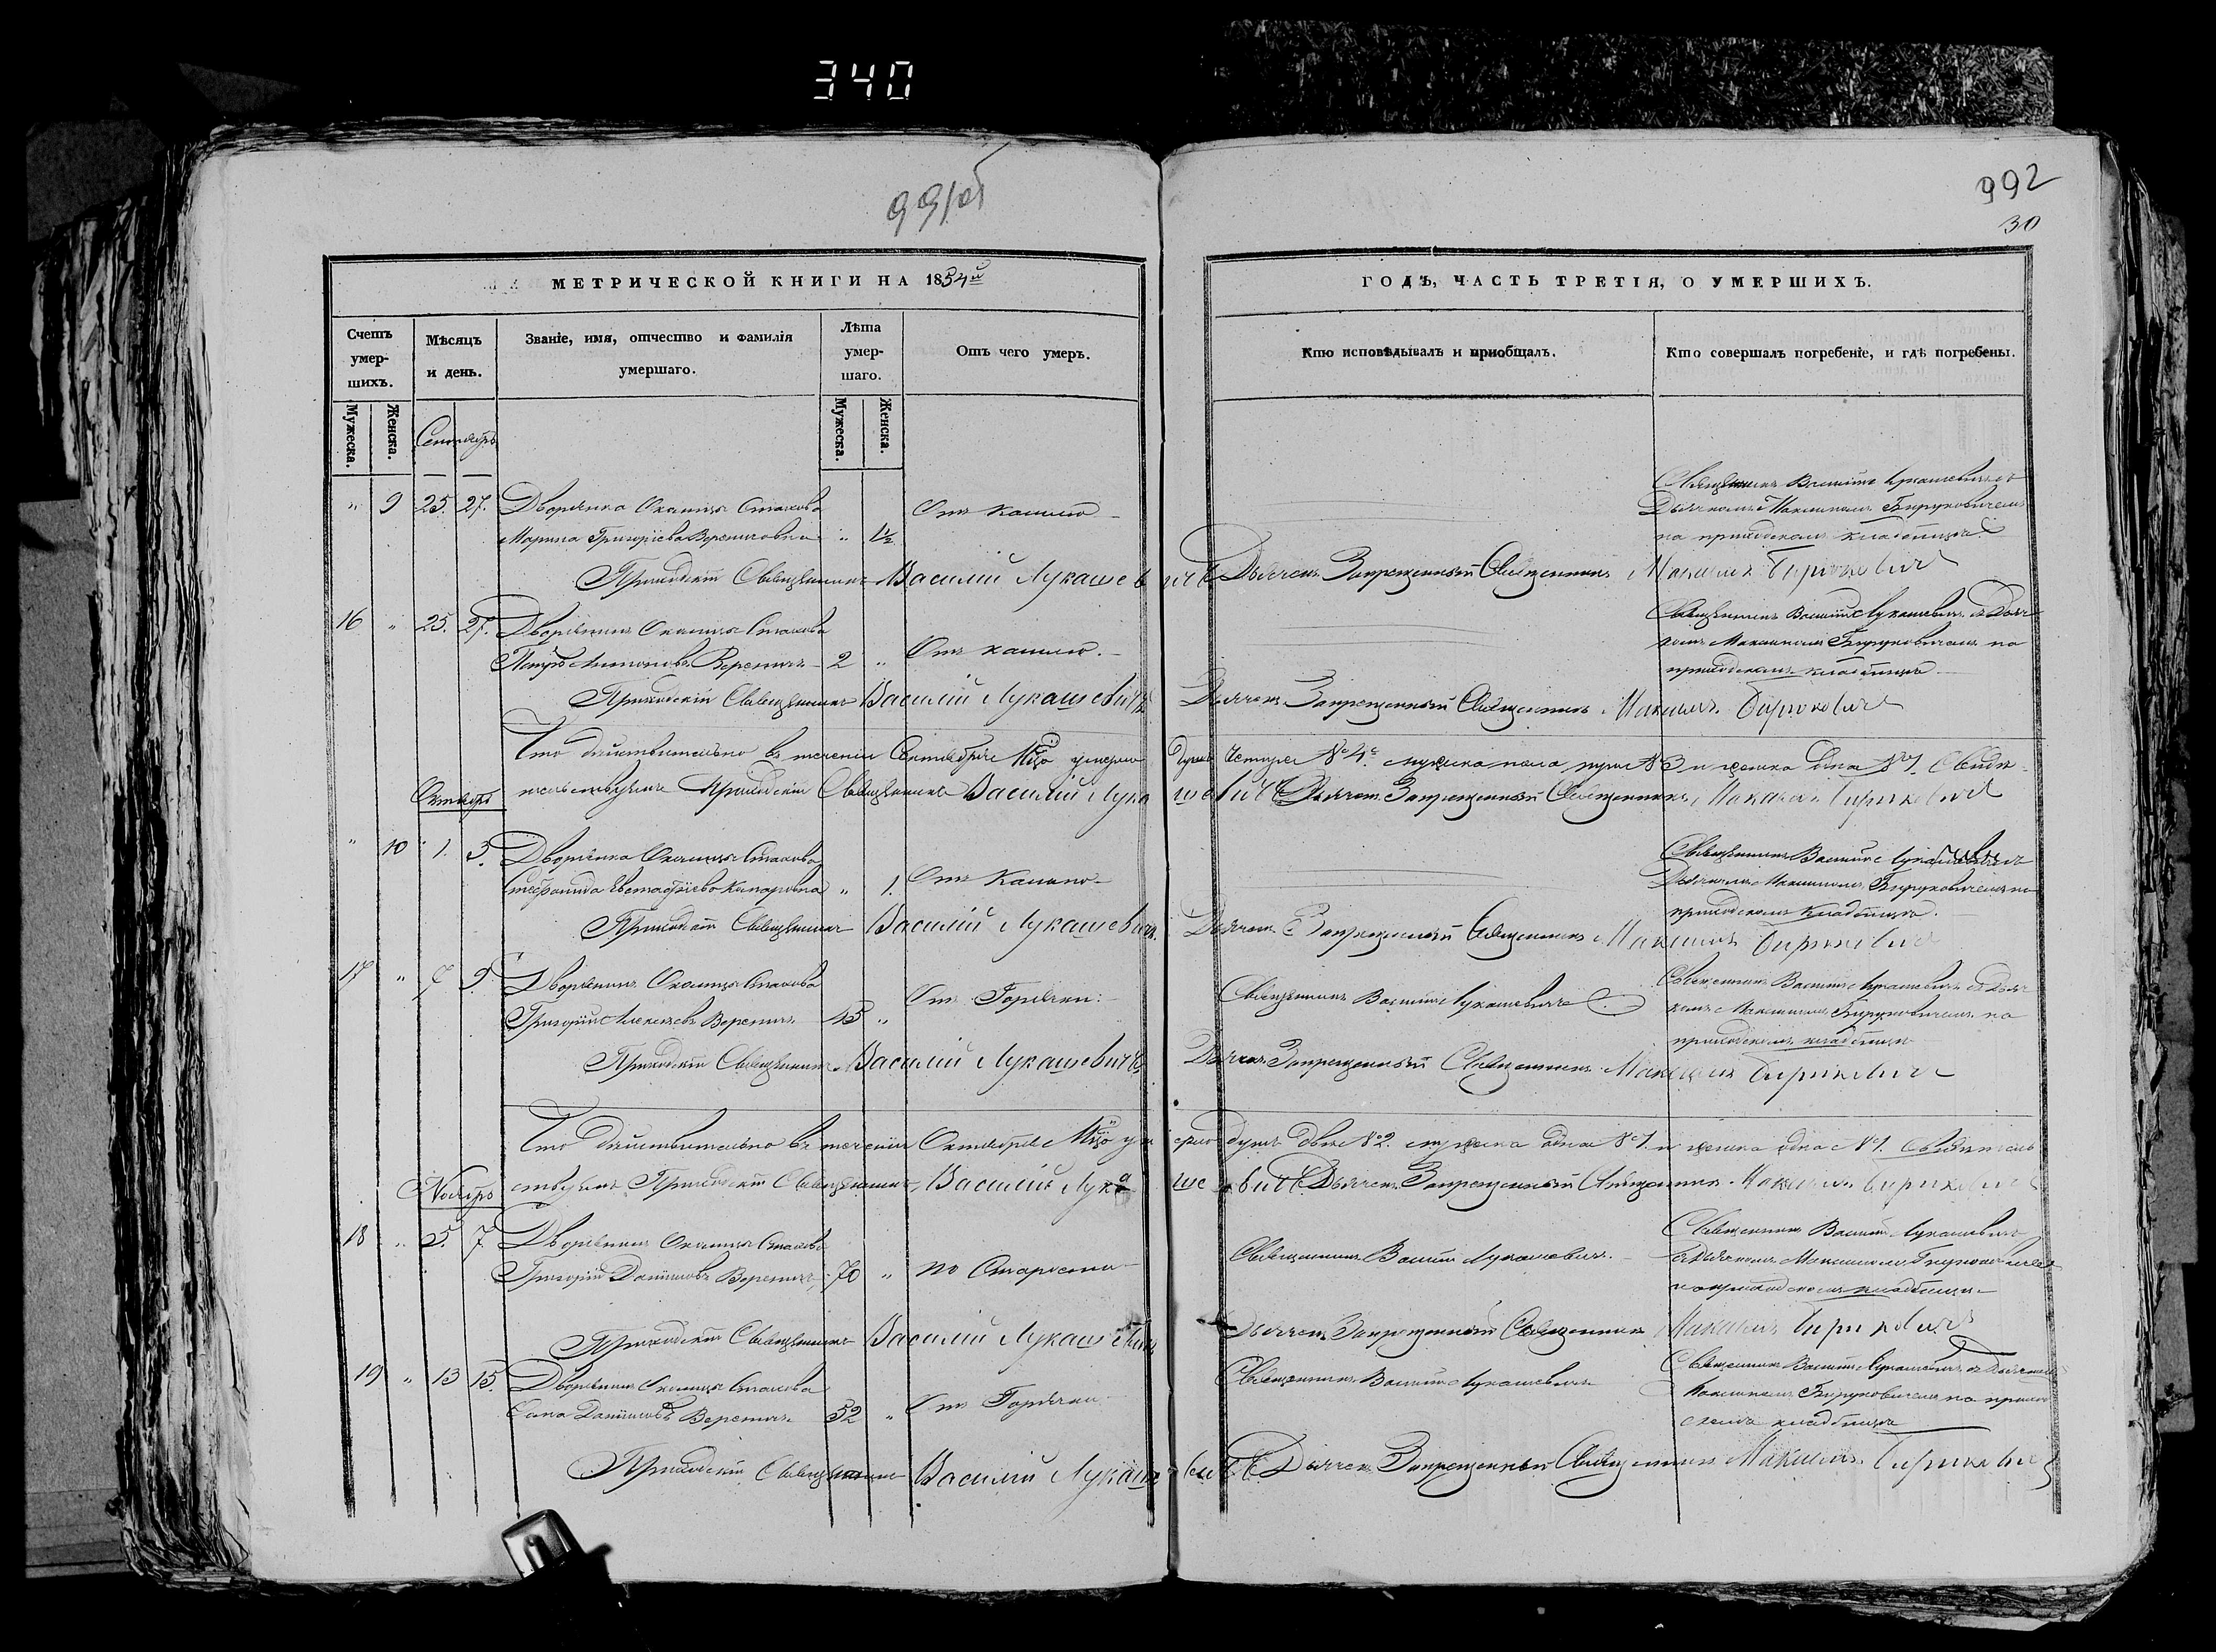 340
991об
992
30
МЕТРИЧЕСКОЙ КНИГИ НА 1854й
ГОДЪ, ЧАСТЬ ТРЕТІЯ, О УМЕРШИХЪ.
Счетъ умер-
шихъ.
Мѣсяцъ
и день.
Званіе, имя, отчество и фамилія
умершаго.
Лѣта
умер-
шаго.
Отъ чего умеръ.
Кто исповѣдывалъ и пріобщалъ.
Кто совершалъ погребеніе, и гдѣ погребены.
Мужеска.
Женска.
Мужеска.
Женска.
Сентябрь
" 9 25. 27. Дворянка Околицы Стахова
Марина Григоріева Вереничовна " 1½ Отъ кашлю
Священникъ Василій Лукашевичъ съ
Дьячкомъ Максимомъ Бируковичемъ
на приходскомъ кладбищѣ
Приходскій Священникъ Василій Лукашевичъ Дьячекъ Запрещенный Священникъ Максимъ Бируковичъ
16 " 25. 27. Дворянинъ Околицы Стахова
Петръ Антоновъ Вереничъ 2 " Отъ кашлю.
Священникъ Василій Лукашевичъ съ Дьяч-
комъ Максимомъ Бируковичемъ на
приходскомъ кладбищѣ
Приходскій Священникъ Василій Лукашевичъ Дьячекъ Запрещенный Священникъ Максимъ Бируковичъ
Что дѣйствительно въ теченіи Сентября Мца умерло душъ четыре № 4. мужеска пола три № 3 и женска одна № 1. Свидѣ-
тельствуемъ Приходскій Священникъ Василій Лукашевичъ Дьячекъ Запрещенный Священникъ Максимъ Бируковичъ
Октябрь
" 10 1. 3. Дворянка Околицы Стахова
Стефанида Евстафіева " 1. Отъ Кашлю
Священникъ Василій Лукашевичъ съ
Дьячкомъ Максимомъ Бируковичемъ на
приходскомъ кладбищѣ.
Приходскій Священникъ Василій Лукашевичъ Дьячекъ Запрещенный Священникъ Максимъ Бируковичъ
17 " 7 9. Дворянинъ Околицы Стахова
Григорій Алексѣевъ Вереничъ 45 " Отъ Горячки.
Священникъ Василій Лукашевичъ
Священникъ Василій Лукашевичъ съ Дьяч-
комъ Максимомъ Бируковичемъ на
приходскомъ кладбищѣ
Приходскій Священникъ Василій Лукашевичъ Дьячекъ Запрещенный Священникъ Максимъ Бируковичъ
Что дѣйствительно въ теченіи Октября Мца умерло душъ двѣ № 2. мужеска одна № 1. и женска одна № 1. Свидѣтель-
ствуемъ Приходскій Священникъ Василій Лукашевичъ Дьячекъ Запрещенный Священникъ Максимъ Бируковичъ
Ноябрь
18 " 5. 7. Дворянинъ Околицы Стахова
Григорій Даниловъ Вереничъ 70 " по Старости
Священникъ Василій Лукашевичъ.
Священникъ Василій Лукашевичъ
съ Дьячкомъ Максимомъ Бируковичемъ
на приходскомъ кладбищѣ
Приходскій Священникъ Василій Лукашевичъ Дьячекъ Запрещенный Священникъ Максимъ Бируковичъ
19 " 13 15. Дворянинъ Околицы Стахова
Сава Даниловъ Вереничъ 52 " Отъ Горячки
Священникъ Василій Лукашевичъ
Священникъ Василій Лукашевичъ съ Дьячкомъ
Максимомъ Бируковичемъ на приход-
скомъ кладбищѣ
Приходскій Священникъ Василій Лукашевичъ Дьячекъ Запрещенный Священникъ Максимъ Бируковичъ